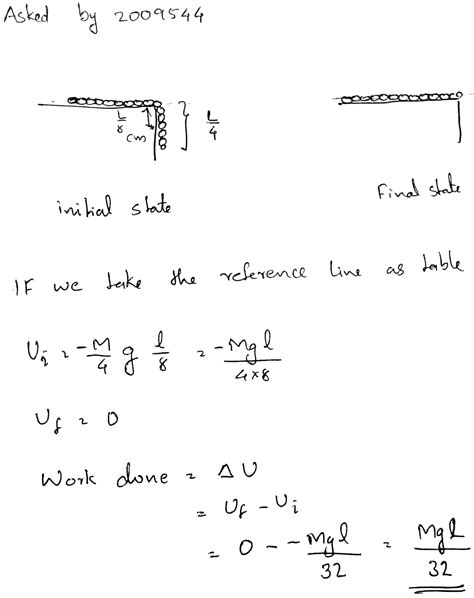 Asked by 2009544
L/8
cm
L/4
initial state
Final state
IF we take the reference line as table
Ui = -M/4 g l/8 = -Mgl/4×8
Uf = 0
Work done = ΔU
= Uf - Ui
= 0 - -Mgl/32 = Mgl/32